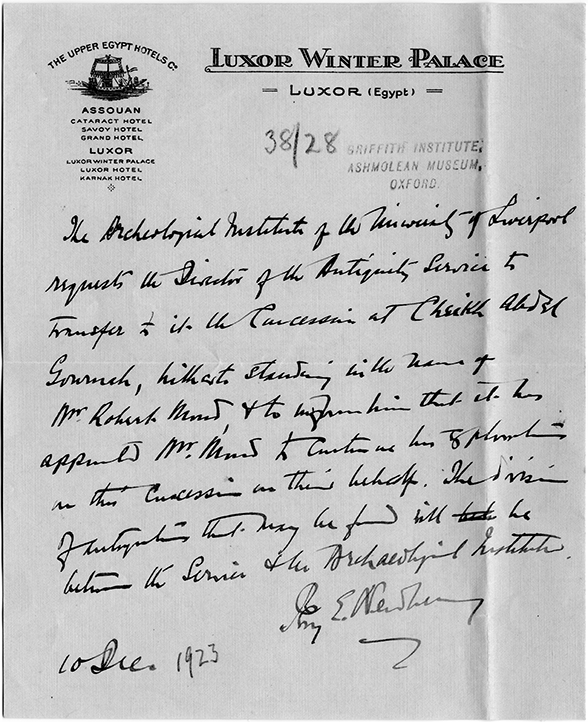 THE UPPER EGYPT HOTELS Co
ASSOUAN
CATARACT HOTEL
SAVOY HOTEL
GRAND HOTEL
LUXOR
LUXOR WINTER PALACE
LUXOR HOTEL
KARNAK HOTEL
LUXOR WINTER PALACE
LUXOR (EGYPT)
38/28
GRIFFITH INSTITUTE,
ASHMOLEAN MUSEUM,
OXFORD.
The Archeological Institute of the University of Liverpool
requests the Director of the Antiquity Service to
transfer to it the Concession at Cheikh Abd El
Gournah, hitherto standing in the name of
Mr. Robert Mond, & to inform him that it has
appointed Mr. Mond to continue his explorations
on this Concession on their behalf. The division
of antiquities that may be found will be
between the Service & the Archaeological Institute.
Percy E. Newberry
10 Dec. 1923